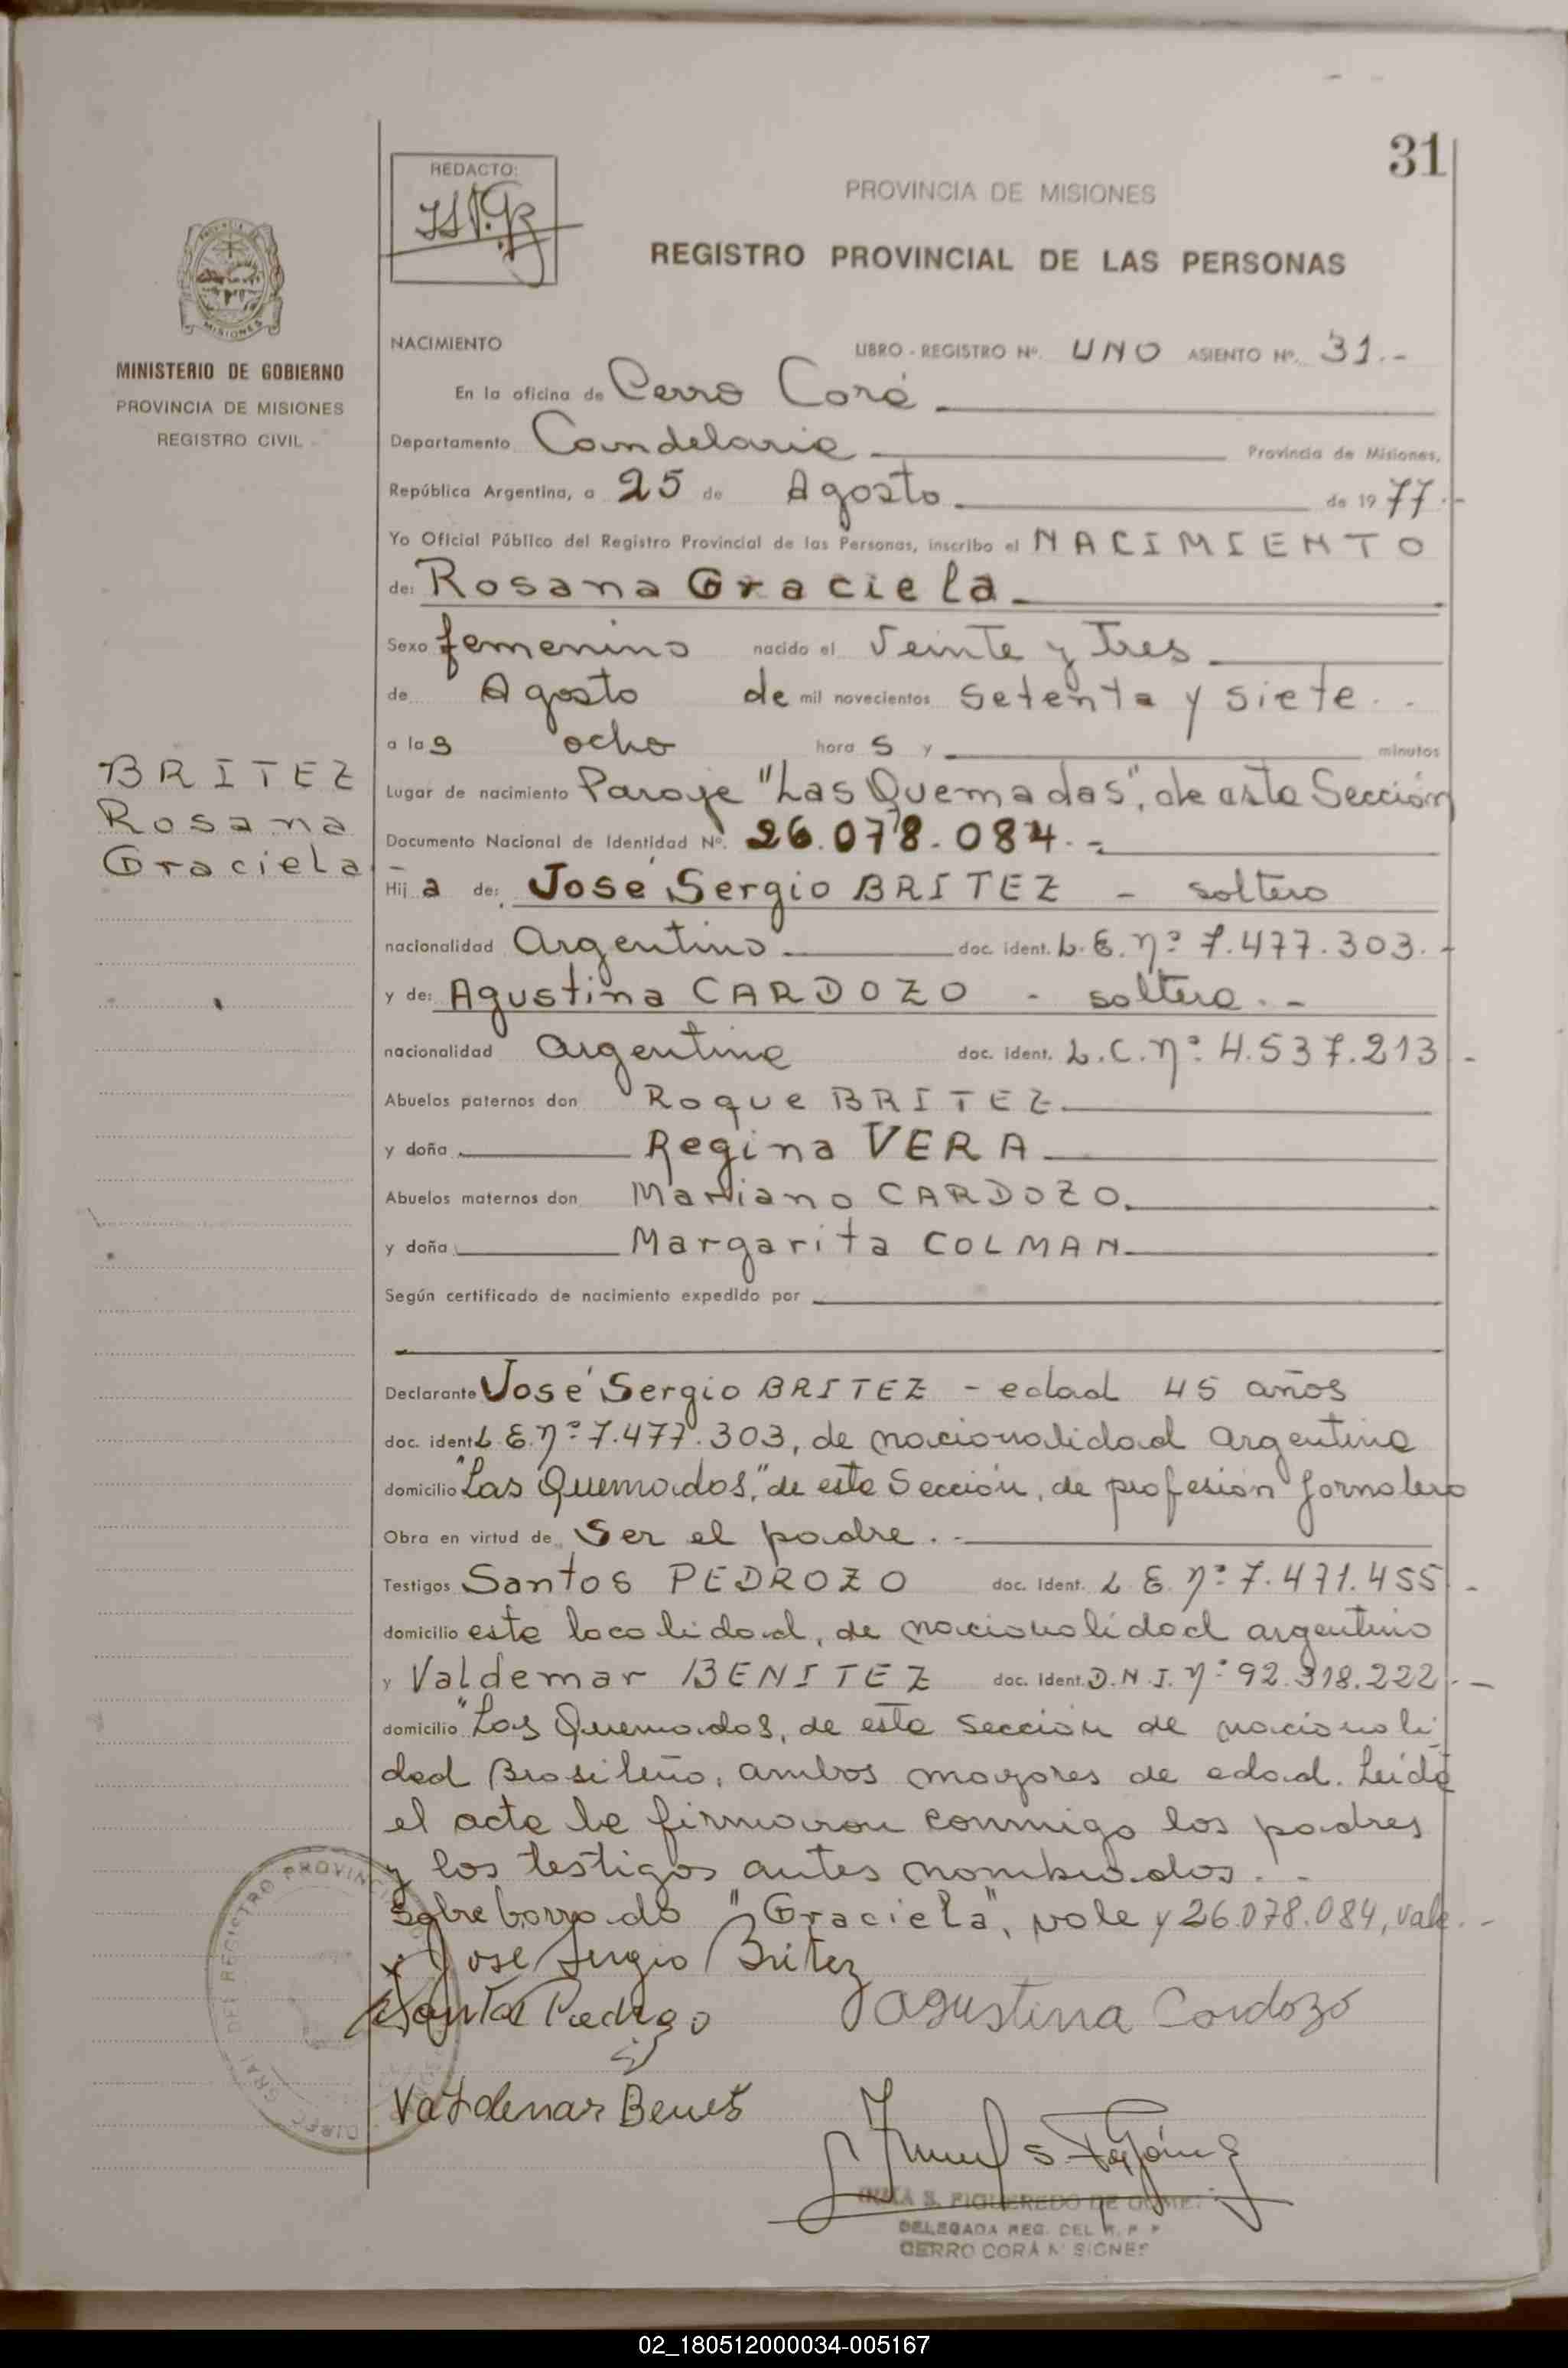 31
REDACTO:
PROVINCIA DE MISIONES
REGISTRO PROVINCIAL DE LAS PERSONAS
MISIONES
MINISTERIO DE GOBIERNO
PROVINCIA DE MISIONES
REGISTRO CIVIL
NACIMIENTO LIBRO - REGISTRO Nº. UNO ASIENTO Nº. 31.-
En la oficina de Cerro Corá
Departamento Candelaria Provincia de Misiones,
República Argentina, a 25 de Agosto de 1977.-
Yo Oficial Público del Registro Provincial de las Personas, inscribo el NACIMIENTO
de: Rosana Graciela
Sexo femenino nacido el Veinte y Tres
de Agosto de mil novecientos setenta y siete.-
a las ocho horas y minutos
BRITEZ
Rosana
Graciela
Lugar de nacimiento Paraje "Las Quemadas", de esta Sección
Documento Nacional de Identidad Nº. 26.078.084.-
Hija de: José Sergio BRITEZ - soltero
nacionalidad Argentino doc. ident. L.E. nº 7.477.303.-
y de: Agustina CARDOZO - soltera.-
nacionalidad argentina doc. ident. L.C. nº 4.537.213.-
Abuelos paternos don Roque BRITEZ
y doña Regina VERA
Abuelos maternos don Mariano CARDOZO
y doña Margarita COLMAN
Según certificado de nacimiento expedido por
Declarante José Sergio BRITEZ - edad 45 años
doc. ident. L.E. nº 7.477.303, de nacionalidad argentina
domicilio "Las Quemadas," de esta Sección, de profesión Jornalero
Obra en virtud de Ser el padre.-
Testigos Santos PEDROZO doc. Ident. L.E. nº 7.471.455.-
domicilio esta localidad, de nacionalidad argentino
y Valdemar BENITEZ doc. Ident. D.N.I. nº 92.318.222.-
domicilio "Las Quemadas, de esta sección de nacionali-
dad Brasileño, ambos mayores de edad. Leída
el acta la firmaron conmigo los padres
y los testigos antes nombrados.-
Sobre borrado "Graciela", vale y 26.078.084, vale.-
Jose Sergio Britez
Agustina Cardozo
Valdemar
DIREC. GRAL. DEL REGISTRO PROVINCIAL
S. FIGUEREDO DE GOMEZ
DELEGADA REG. DEL R. P. P.
CERRO CORA MISIONES
02_180512000034-005167